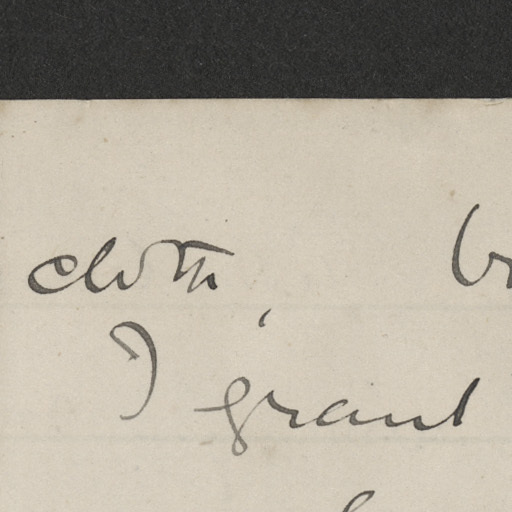 cloth,
I grant